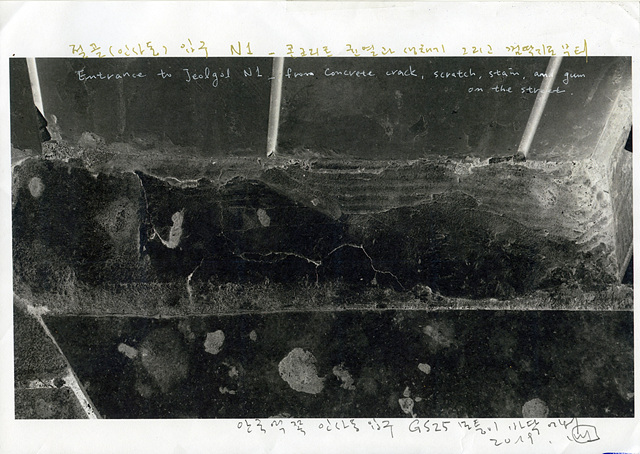 절골(인사동) 입구 N1 _ 콘크리트 균열과 생채기 그리고 껌딱지로부터
Entrance to Jeolgol N1 _ from Concrete crack, scratch, stain, and gum
on the street.
안국역 쪽 인사동 입구 GS25 모퉁이 바닥
2019.